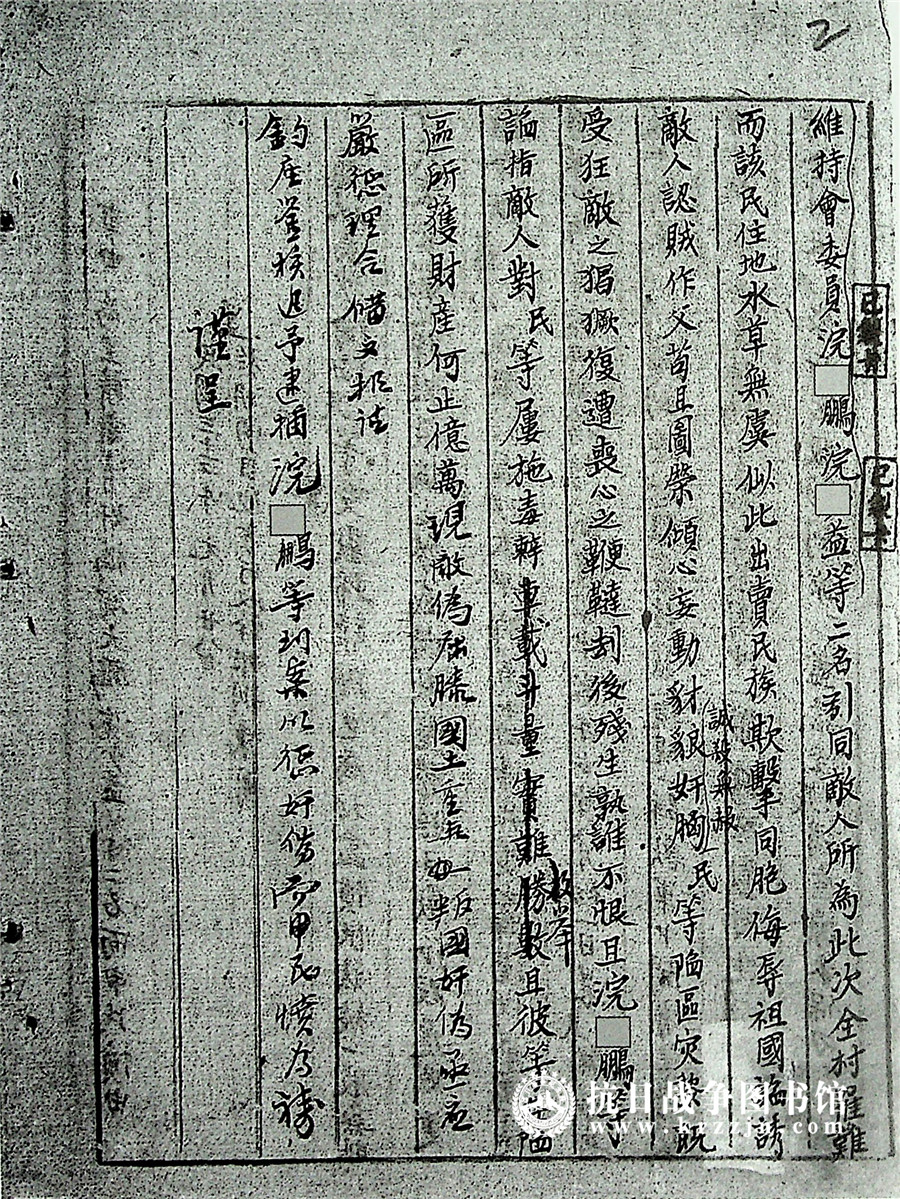 2
維持會委員浣□鵬浣□益等二名引同敵人所為此次全村罹難
而該民住地水草無虞似此出賣民族欺擊同胞侮辱祖國諂誘
敵人認賊作父苟且圖榮傾心妄動豺狼奸胸誠殊鼻民等陷區灾黎既
受狂敵之猖獗復遭喪心之鞭韃刦後殘生孰誰不恨且浣□鵬等
諂指敵人對民等屢施毒辭車載斗量實難勝數且彼等陷
區所獲財產何止億萬現敵偽屈膝國土重光叛國奸偽亟應
嚴懲理合備文報請
鈞座鑒核迅予逮捕浣□鵬等到案以懲奸傷而申民憤為禱
謹呈
抗日战争图书馆
www.krzzjn.com